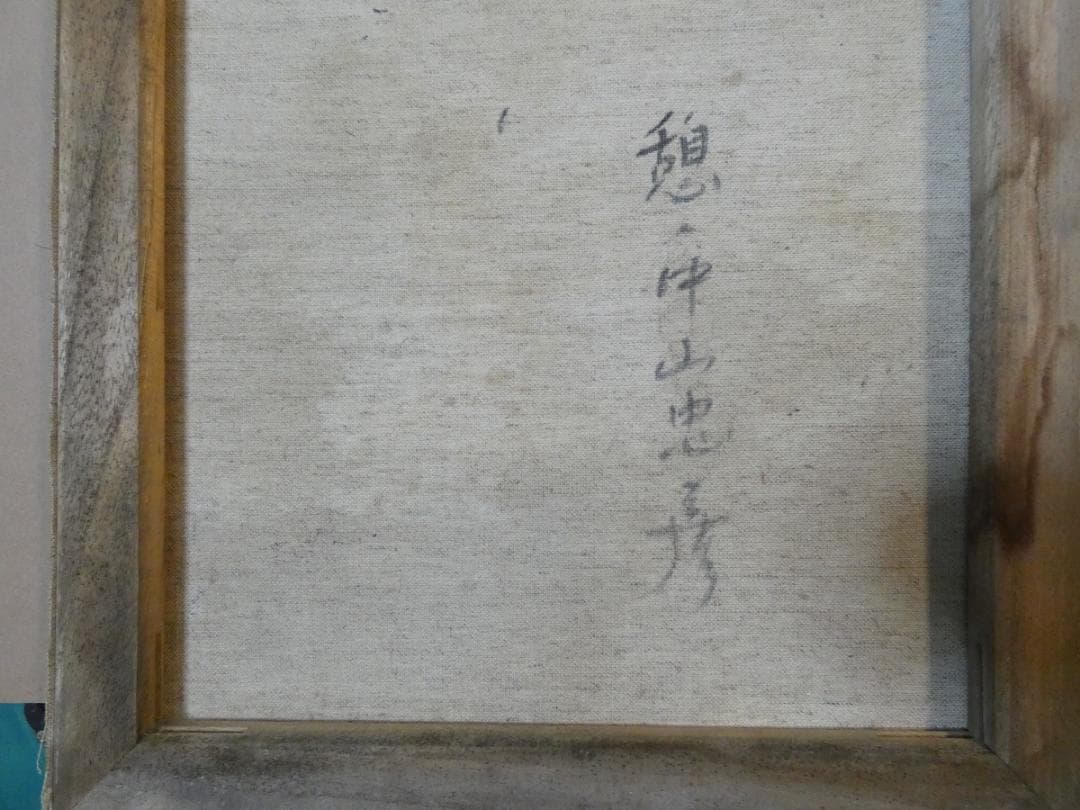 憩 中山忠彦